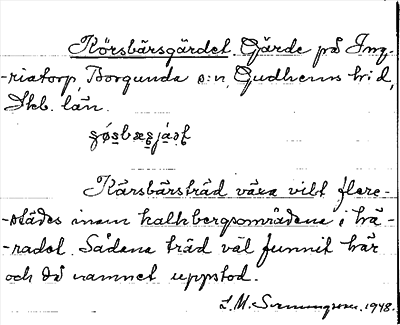 Körsbärsgärdet. Gärde på Ing-
-riatorp, Borgunda s:n, Gudhems hrd,
Skb. län.
Kärsbärsträd växa vilt flere-
-städes inom kalkbergsområdena i hä-
-radet. Sådana träd väl funnit här
och då namnet uppstod.
L. M. 1948.